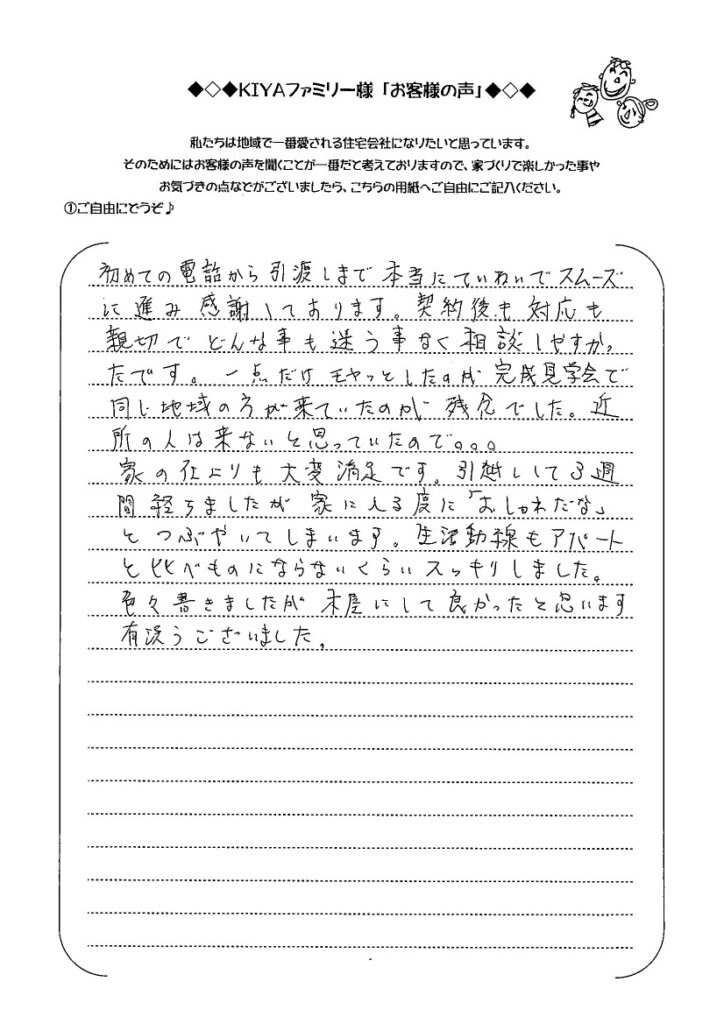 ◆◇◆KIYAファミリー様「お客様の声」◆◇◆
私たちは地域で一番愛される住宅会社になりたいと思っています。
そのためにはお客様の声を聞くことが一番だと考えておりますので、家づくりで楽しかった事や
お気づきの点などがございましたら、こちらの用紙へご自由にご記入ください。
①ご自由にどうぞ♪
初めての電話から引渡しまで本当にていねいでスムーズ
に進み感謝しております。契約後も対応も
親切でどんな事も迷う事なく相談しやすかっ
たです。一点だけモヤッとしたのが完成見学会で
同じ地域の方が来ていたのが残念でした。近
所の人は来ないと思っていたので。。。
家の仕上りも大変満足です。引越しして3週
間経ちましたが家に入る度に「おしゃれだな」
とつぶやいてしまいます。生活動線もアパート
と比べものにならないくらいスッキリしました。
色々書きましたが木屋にして良かったと思います
有難うございました。